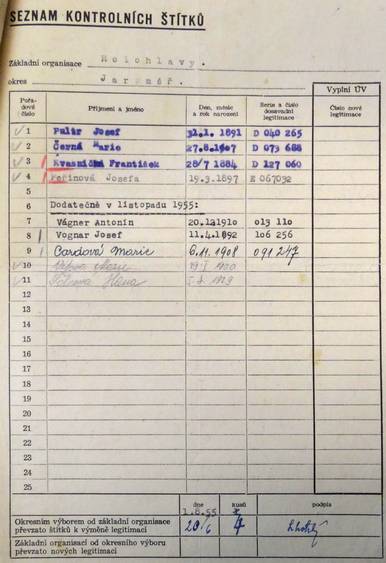 SEZNAM KONTROLNÍCH ŠTÍTKŮ
Základní organisace Holohlavy.
okres Jaroměř.
Pořadové číslo Příjmení a jméno Den, měsíc a rok narození Serie a číslo dosavadní legitimace Vyplní ÚV Číslo nové legitimace
1 Josef 31.1. 1891 D 040 265
2 Černá Marie 27.8.1907 D 073 688
3 Kvasnička František 28/7 1884 D 127 060
4 Josefa 19.3.1897 E 067032
5
6 Dodatečně v listopadu 1955:
7 Vágner Antonín 20.12.1910 013 110
8 Vognar Josef 11.4.1892 106 256
9 Marie 6.11.1908 091247
10
11 Helena
12
13
14
15
16
17
18
19
20
21
22
23
24
25
dne kusů podpis
1.8.55
Okresním výborem od základní organisace převzato štítků k výměně legitimací 20/6 4
Základní organisací od okresního výboru převzato nových legitimací